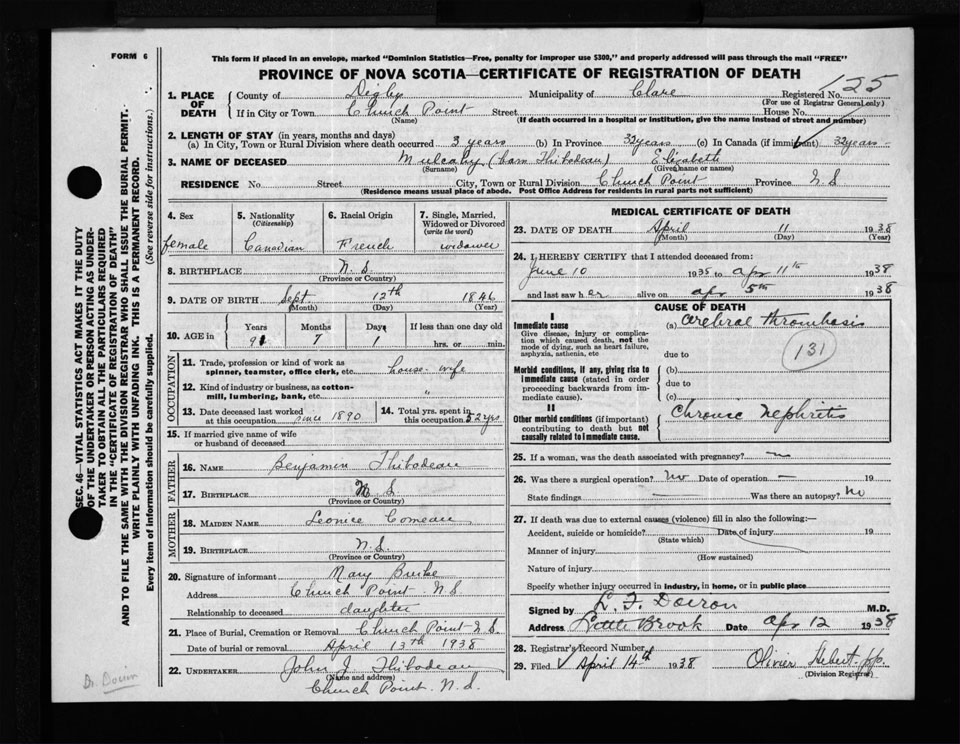 FORM 6
This form if placed in an envelope, marked "Dominion Statistics—Free, penalty for improper use $300," and properly addressed will pass through the mail "FREE"
PROVINCE OF NOVA SCOTIA—CERTIFICATE OF REGISTRATION OF DEATH
125
1. PLACE OF DEATH
County of Digby Municipality of Clare Registered No.
(For use of Registrar General only)
If in City or Town Church Point Street House No.
(Name) (If death occurred in a hospital or institution, give the name instead of street and number)
2. LENGTH OF STAY (in years, months and days)
(a) In City, Town or Rural Division where death occurred 3 years (b) In Province 32 years (c) In Canada (if immigrant) 32 years
3. NAME OF DECEASED Mulcahy (born Thibodeau) Elizabeth
(Surname) (Given name or names)
RESIDENCE No. Street City, Town or Rural Division Church Point Province N.S
(Residence means usual place of abode. Post Office Address for residents in rural parts not sufficient)
4. Sex
female
5. Nationality
(Citizenship)
Canadian
6. Racial Origin
French
7. Single, Married, Widowed or Divorced
(write the word)
widower
8. BIRTHPLACE N.S.
(Province or Country)
9. DATE OF BIRTH Sept 12th 1846
(Month) (Day) (Year)
10. AGE in
Years Months Days If less than one day old
91 7 1 hrs. or min.
OCCUPATION
11. Trade, profession or kind of work as spinner, teamster, office clerk, etc. house-wife
12. Kind of industry or business, as cotton-mill, lumbering, bank, etc. "
13. Date deceased last worked at this occupation since 1890
14. Total yrs. spent in this occupation 52 yrs
15. If married give name of wife or husband of deceased
FATHER
16. NAME Benjamin Thibodeau
17. BIRTHPLACE N.S
(Province or Country)
MOTHER
18. MAIDEN NAME Leonice Comeau
19. BIRTHPLACE N.S.
(Province or Country)
20. Signature of informant Mary Burke
Address Church Point N.S
Relationship to deceased daughter
21. Place of Burial, Cremation or Removal Church Point N.S.
Date of burial or removal April 13th 1938
22. UNDERTAKER John J Thibodeau
(Name and address)
Church Point. N.S.
MEDICAL CERTIFICATE OF DEATH
23. DATE OF DEATH April 11 1938
(Month) (Day) (Year)
24. I HEREBY CERTIFY that I attended deceased from:
June 10 1935 to Apr 11th 1938
and last saw her alive on Apr 5th 1938
CAUSE OF DEATH
I
Immediate cause
Give disease, injury or complication which caused death, not the mode of dying, such as heart failure, asphyxia, asthenia, etc
(a) Cerebral thrombosis
due to
131
Morbid conditions, if any, giving rise to immediate cause (stated in order proceeding backwards from immediate cause).
(b)
due to
(c)
II
Other morbid conditions (if important) contributing to death but not causally related to immediate cause.
Chronic nephritis
25. If a woman, was the death associated with pregnancy?
26. Was there a surgical operation? No Date of operation —
State findings — Was there an autopsy? No
27. If death was due to external causes (violence) fill in also the following:—
Accident, suicide or homicide? Date of injury 19
(State which)
Manner of injury
(How sustained)
Nature of injury
Specify whether injury occurred in industry, in home, or in public place
Signed by L. F. Doiron M.D.
Address Little Brook Date Apr 12 1938
28. Registrar's Record Number
29. Filed April 14th 1938 Olivier Hebert
(Division Registrar)
SEC. 46—VITAL STATISTICS ACT MAKES IT THE DUTY
OF THE UNDERTAKER OR PERSON ACTING AS UNDER-
TAKER TO OBTAIN ALL THE PARTICULARS REQUIRED
IN THE "CERTIFICATE OF REGISTRATION OF DEATH"
AND TO FILE THE SAME WITH THE DIVISION REGISTRAR WHO SHALL ISSUE THE BURIAL PERMIT.
WRITE PLAINLY WITH UNFADING INK. THIS IS A PERMANENT RECORD.
Every item of information should be carefully supplied. (See reverse side for instructions.)